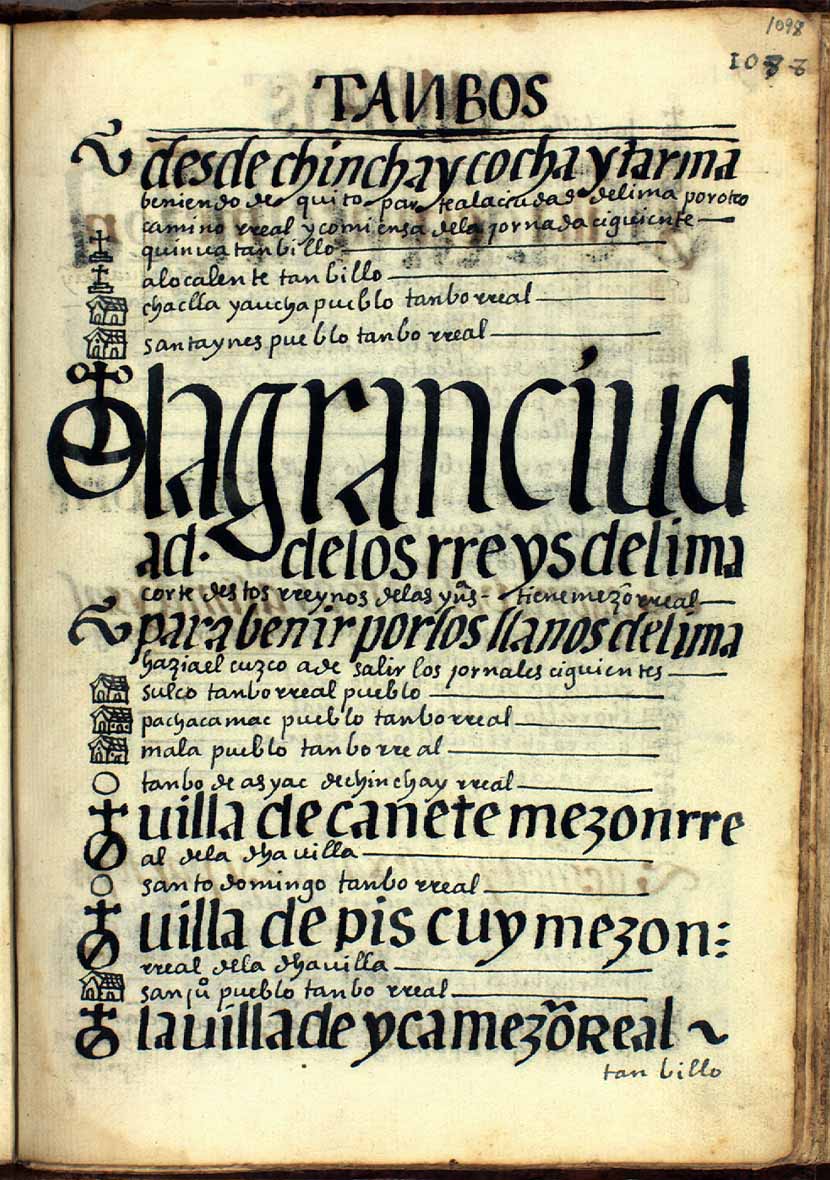 1098
1088
TANBOS
desde chinchay cocha y tarma
beniendo de quito parte a la ciudad de lima por otro
camino rreal y comiensa de la jornada ciguiente
quinua tanbillo
alocalente tanbillo
chaclla yaucha pueblo tanbo rreal
santa ynes pueblo tanbo rreal
la gran ciud
ad. de los rreys de lima
corte destos rreynos de las yns - tiene mezõ rreal
para benir por los llanos de lima
hazia el cuzco a de salir los jornales ciguientes
sulco tanbo rreal pueblo
pachacamac pueblo tanbo rreal
mala pueblo tanbo rreal
tanbo de asyac de chinchay rreal
uilla de canete mezon rre
al de la dha uilla
santo domingo tanbo rreal
uilla de pis cuy mezon:
rreal de la dha uilla
san juº pueblo tanbo rreal
la uilla de yca mezõ Real
tanbillo